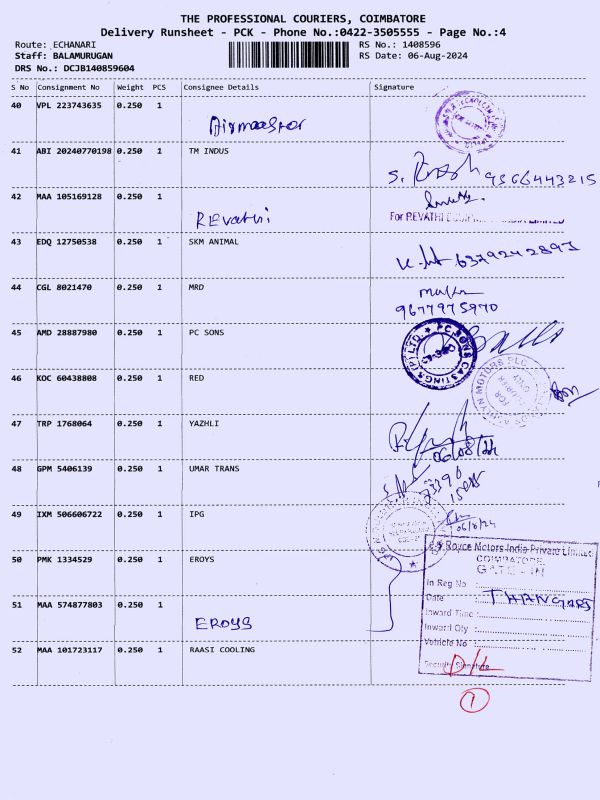 THE PROFESSIONAL COURIERS, COIMBATORE
Delivery Runsheet - PCK - Phone No.:0422-3505555 - Page No.:4
Route: ECHANARI
Staff: BALAMURUGAN
DRS No.: DCJB140859604
RS No.: 1408596
RS Date: 06-Aug-2024
S No Consignment No Weight PCS Consignee Details Signature
40 VPL 223743635 0.250 1
41 ABI 20240770198 0.250 1 TM INDUS
S. 9566443215
42 MAA 105169128 0.250 1 REvathi
For REVATHI
43 EDQ 12750538 0.250 1 SKM ANIMAL
6379242897
44 CGL 8021470 0.250 1 MRD
9677975970
45 AMD 28887980 0.250 1 PC SONS
PC SONS CASTINGS (P) LTD.
46 KOC 60438808 0.250 1 RED
47 TRP 1768064 0.250 1 YAZHLI
06/08/24
48 GPM 5406139 0.250 1 UMAR TRANS
49 IXM 506606722 0.250 1 IPG
50 PMK 1334529 0.250 1 EROYS
Royce Motors India Private Limited
COIMBATORE.
GATE - IN
In Reg No :
Date : THANGARAJ
Inward Time :
Inward Qty :
Vehicle No :
Security Signature
51 MAA 574877803 0.250 1 EROYS
52 MAA 101723117 0.250 1 RAASI COOLING
1